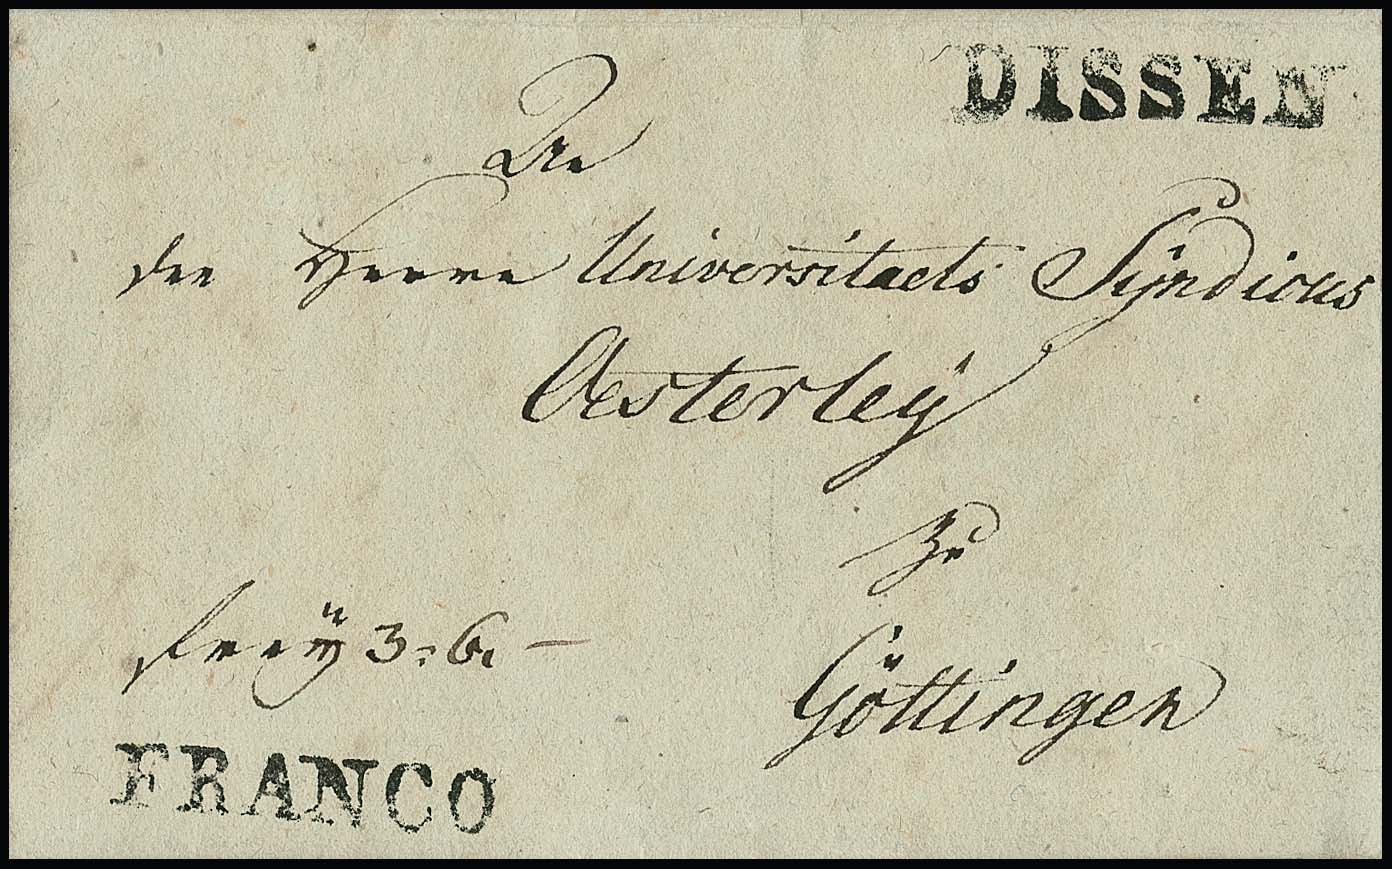 DISSEN
An
den Herrn Universitaets Syndicus
Oesterleÿ
Zu
Göttingen
freÿ 3: 6.
FRANCO